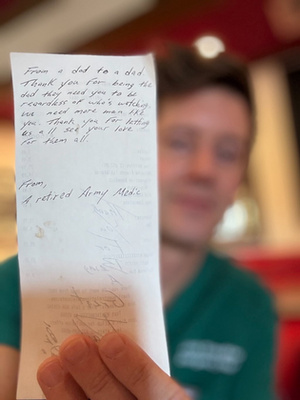 From a dad to a dad
Thank you for being the
dad they need you to be
regardless of who's watching,
we need more men like
you. Thank you for letting
us all see your love
for them all.
From,
A retired Army Medic